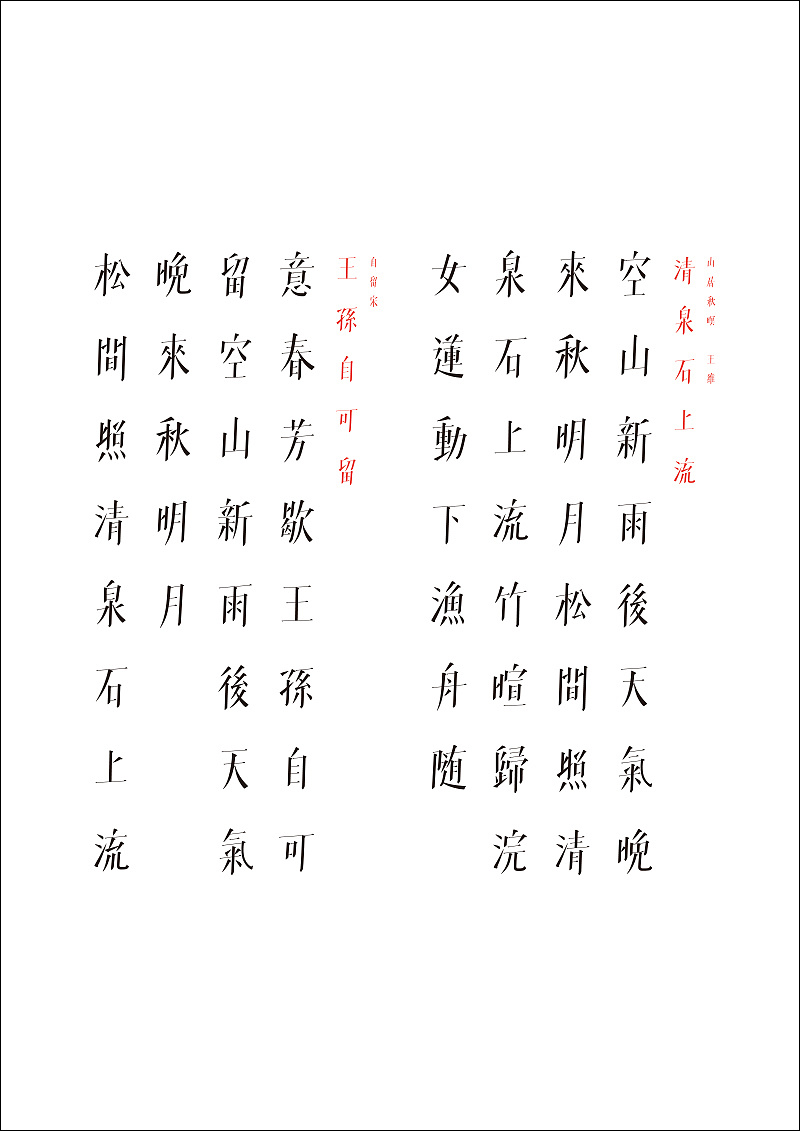 山居秋暝 王維
清泉石上流
空山新雨後天氣晚
來秋明月松間照清
泉石上流竹暄歸浣
女蓮動下漁舟随
自留宋
王孫自可留
意春芳歇王孫自可
留空山新雨後天氣
晚來秋明月
松間照清泉石上流